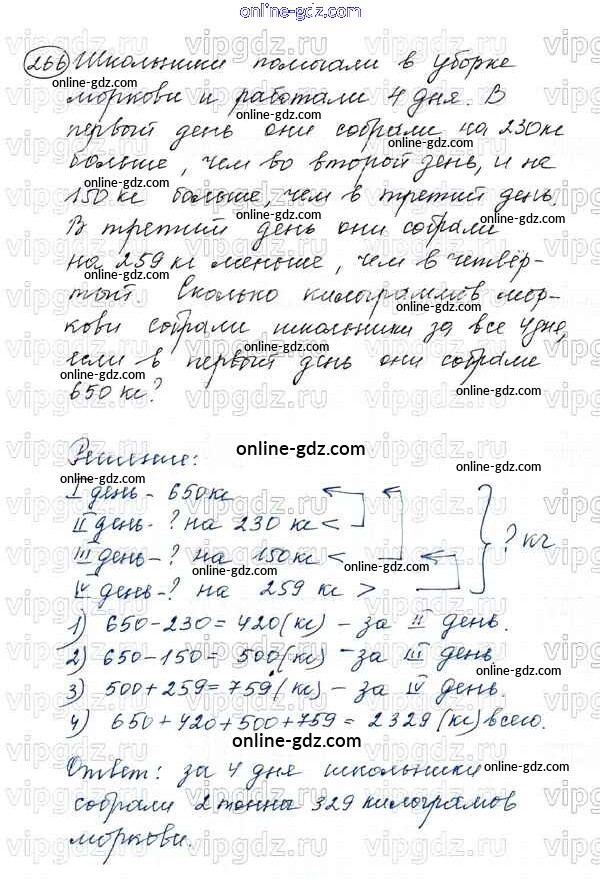 online-gdz.com
266 Школьники помогали в уборке
моркови и работали 4 дня. В
первый день они собрали на 230кг
больше, чем во второй день, и на
150кг больше, чем в третий день.
В третий день они собрали
на 259кг меньше, чем в четвёр-
тый. Сколько килограммов мор-
кови собрали школьники за все 4дня,
если в первый день они собрали
650кг?
online-gdz.com
Решение:
I день - 650кг
II день - ? на 230 кг <
III день - ? на 150кг < ? кг
IV день - ? на 259 кг >
1) 650-230=420(кг) - за II день.
2) 650-150= 500(кг) - за III день
3) 500+259=759(кг) - за IV день.
4) 650+420+500+759= 2329(кг) всего.
online-gdz.com
Ответ: за 4 дня школьники
собрали 2 тонна 329 килограмов
моркови.